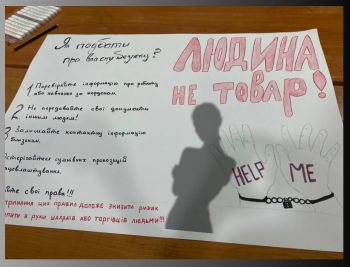 Як подбати
про власну безпеку?
1 Перевіряйте інформацію про роботу
або навчання за кордоном.
2 Не передавайте свої документи
іншим людям!
3 Залишайте контактну інформацію
близьким.
пропозицій
свої права!!!
цих правил допоможе знизити ризик
в руки шахраїв або торгівців людьми!!!
ЛЮДИНА
НЕ ТОВАР!
HELP ME